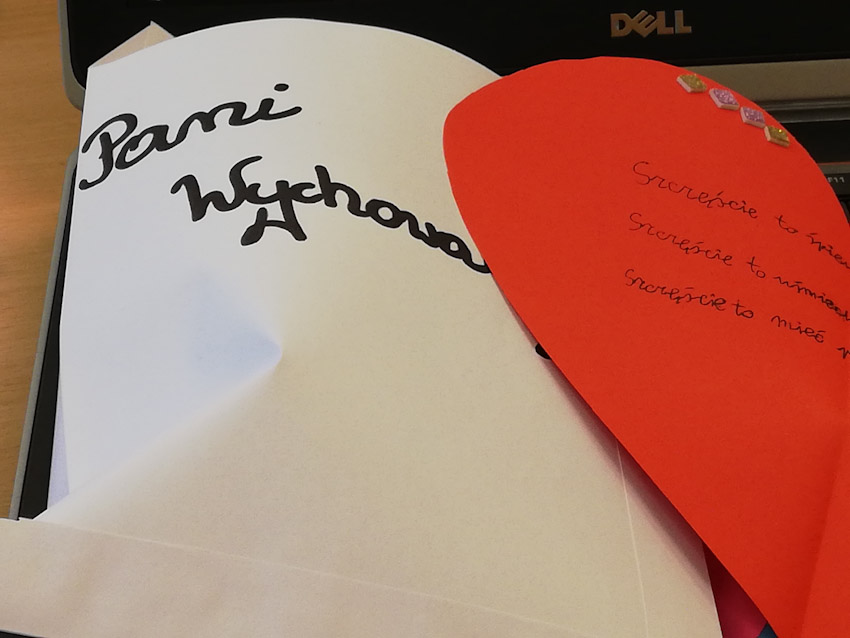 DELL
Pani
Wychowa
Szczęście to śpie
Szczęście to uśmiech
Szczęście to mieć
F11